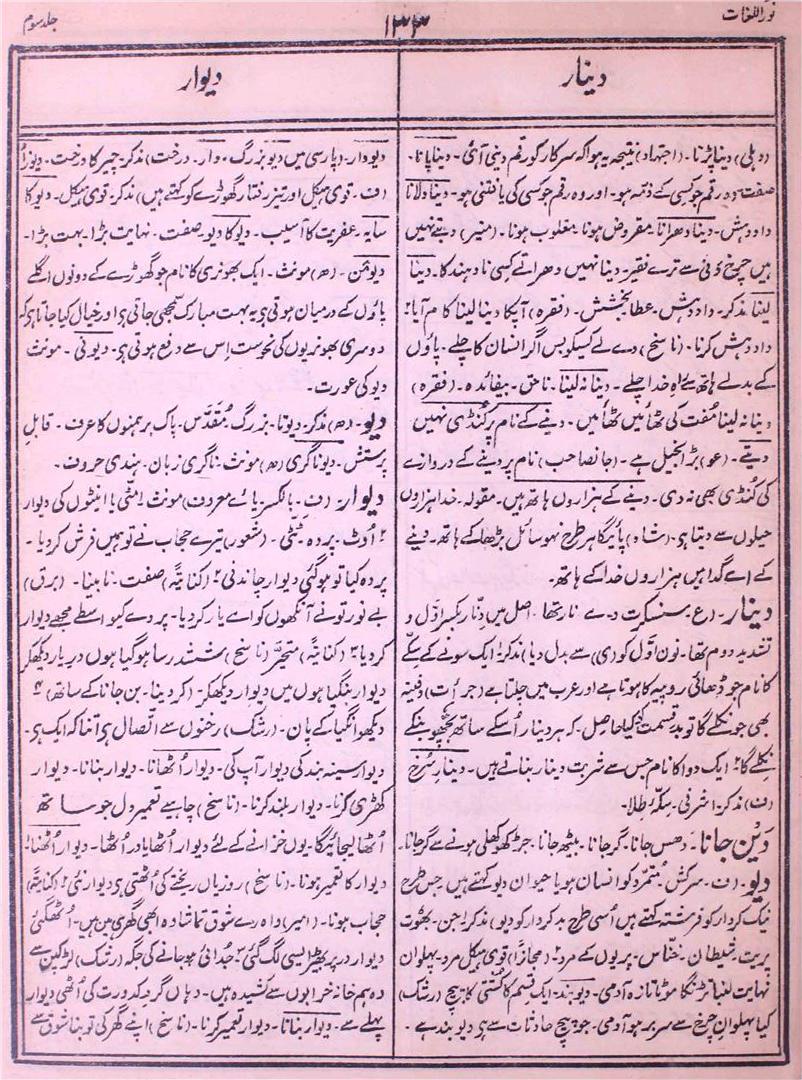 نور اللغات
۱۳۳
جلد سوم
دینار
دیوار
(دہلی) دینا پڑنا۔ (اجتہاد) نتیجہ یہ ہوا کہ سرکار کو رقم دینی آئی۔ دینا پانا۔
صفت۔ وہ رقم جو کسی کے ذمّہ ہو۔ اور وہ رقم جو کسی کی یافتنی ہو۔ دینا دلانا
داد و دہش۔ دینا دھرانا۔ مقروض ہونا۔ مغلوب ہونا۔ (منیر) دیتے نہیں
ہیں چرخ دنی سے ترے فقیر۔ دینا نہیں دھراتے کسی نادہند کا۔ دینا
لینا۔ مذکر۔ داد و دہش۔ عطا بخشش۔ (فقرہ) آپکا دینا لینا کام آیا؛
داد و دہش کرنا۔ (ناسخ) دے لے کسیکو بس اگر انسان کا چلے۔ پاؤں
کے بدلے ہاتھ سے راہ خدا چلے۔ دینا نہ لینا۔ ناحق۔ بیفائدہ۔ (فقرہ)
دینا نہ لینا مُفت کی ٹھائیں ٹھائیں۔ دینے کے نام پر کُنڈی نہیں
دیتے۔ (عو) بڑا بخیل ہے۔ (جانصاحب) نام پر دینے کے دروازے
کی کُنڈی بھی نہ دی۔ دینے کے ہزاروں ہاتھ ہیں۔ مقولہ۔ خدا ہزاروں
حیلوں سے دیتا ہی۔ (شاہ) پائیگا ہر طرح نہو سائل بڑھا کے ہاتھ۔ دینے
کے اے گدا ہیں ہزاروں خدا کے ہاتھ۔
دینار۔ (ع۔ سنسکرت دے نار تھا۔ اصل میں دِنّار بکسر اوّل و
تشدید دوم تھا۔ نون اوّل کو (ی) سے بدل دیا) مذکر؛ ایک سونے کے سکّے
کا نام جو ڈھائی روپیہ کا ہوتا ہے اور عرب میں چلتا ہے (جرأت) دفینہ
بھی جو نکلے گا تو بد قسمت کو کیا حاصل۔ کہ ہر دینار اُسکے ساتھ بچھّو بنکے
نکلے گا؛ ۲ ایک دوا کا نام جس سے شربت دینار بناتے ہیں۔ دینار سُرخ
(ف) مذکر۔ اشرفی۔ سکّہ طلا۔
دَیْن جانا۔ دھس جانا۔ گر جانا۔ بیٹھ جانا۔ جڑ کھوکھلی ہونے سے گر جانا۔
دیو۔ (ف۔ سرکش مُتمرّد کو انسان ہو یا حیوان دیو کہتے ہیں جس طرح
نیک کردار کو فرشتہ کہتے ہیں اُسی طرح بدکردار کو دیو) مذکر؛ جن۔ بھوت
پریت۔ شیطان۔ خنّاس۔ پریوں کے مرد ۲؛ (مجازاً) قوی ہیکل مرد۔ پہلوان
نہایت لنبا تڑنگا موٹا تازہ آدمی۔ دیو بند۔ ایک قسم کا کُشتی کا پیچ (رشک)
کیا پہلوانِ چرخ سے سربر ہو آدمی۔ جو پیچ حادثات سے ہی دیو بند ہے۔
دیودار۔ (پارسی میں دیو بزرگ۔ دار۔ درخت) مذکر۔ چیر کا درخت۔ دیوزاد
(ف۔ قوی ہیکل اور تیز رفتار گھوڑے کو کہتے ہیں) مذکر۔ قوی ہیکل۔ دیو کا
سایہ۔ عفریت کا آسیب۔ دیو کا دیو۔ صفت۔ نہایت بڑا۔ بہت بڑا۔
دیومن۔ (ھ) مونث۔ ایک بھونری کا نام جو گھوڑے کے دونوں اگلے
پاؤں کے درمیان ہوتی ہی یہ بہت مبارک سمجھی جاتی ہی اور خیال کیا جاتا ہی کہ
دوسری بھونریوں کی نحوست اس سے دفع ہوتی ہی۔ دیونی۔ مونث
دیو کی عورت۔
دیو۔ (ھ) مذکر۔ دیوتا۔ بزرگ۔ مُقدّس۔ پاک۔ برہمنوں کا عرف۔ قابلِ
پرستش۔ دیوناگری (ھ) مونث۔ ناگری زبان۔ ہندی حروف۔
دیوار۔ (ف۔ بالکسر یائے معروف) مونث؛ مٹّی یا اینٹوں کی دیوار
۲ اوٹ۔ پردہ۔ ٹٹّی۔ (شعور) تیرے حجاب نے تو ہمیں فرش کر دیا۔
پردہ کیا تو ہوگئی دیوار چاندنی ۲ (کنایۃً) صفت۔ نابینا۔ (برق)
بے نور تو نے آنکھوں کو اے یار کر دیا۔ پردے کیواسطے مجھے دیوار
کر دیا ۳ (کنایۃً) متحیّر (ناسخ) ششدر سا ہوگیا ہوں در یار دیکھکر
دیوار بنگیا ہوں میں دیوار دیکھکر۔ (کر دینا۔ بن جانا کے ساتھ) ۴
دیکھو انگیا کے پان۔ (رشک) رخنوں سے اتّصال ہی اتنا کہ ایک ہی۔
دیوار سینہ بند کی دیوار آپ کی۔ دیوار اُٹھانا۔ دیوار بنانا۔ دیوار
کھڑی کرنا۔ دیوار بلند کرنا۔ (ناسخ) چاہیے تعمیر دل جو ساتھ
اُٹھا لیجائیگا۔ یوں خزانے کے لئے دیوار اُٹھا یا در اُٹھا۔ دیوار اُٹھنا؛
دیوار کا تعمیر ہونا۔ (ناسخ) روزیاں ریختے کی اُٹھتی ہی دیوار نئی ۲؛ (کنایۃً)
حجاب ہونا۔ (امیر) واہ رے شوق تماشا وہ ابھی گھر ہی میں ہیں۔ اُٹھ گئی
دیوار در پر بھیڑ ایسی لگ گئی ۳ جُدائی ہو جانے کی جگہ (رشک) لڑکپن سے
وہ ہم خانہ خرابوں سے کشیدہ ہیں۔ وہاں گرد کدورت کی اُٹھی دیوار
پہلے سے۔ دیوار بنانا۔ دیوار تعمیر کرنا۔ (ناسخ) اپنے گھر کی تو بنا شوق سے